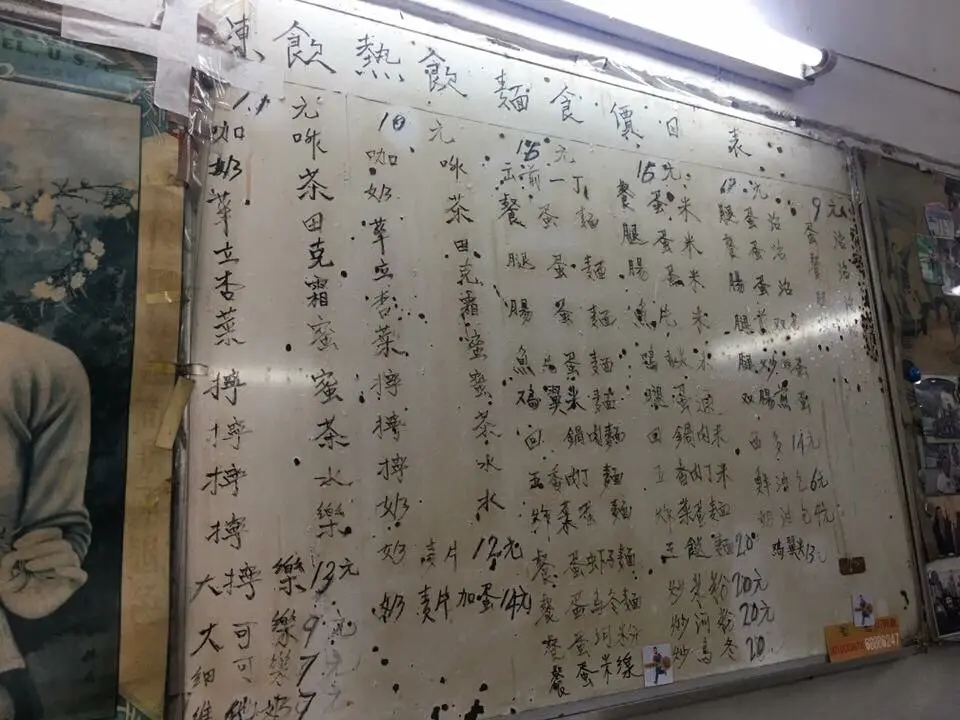 凍飲 熱飲 麵食價日表
元
咖啡
奶茶
華田
立克
杏霜
菜蜜
擰蜜
擰茶
擰水
擰樂
大擰樂13元
大可樂9元
細可樂7元
維他奶7元
10元
咖啡
奶茶
華田
立克
杏霜
菜蜜
擰蜜
擰茶
擰水
奶水
奶責片12元
奶責片加蛋14元
15元
五前一丁
餐蛋麵
腿蛋麵
腸蛋麵
魚蛋麵
鸡翼米麵
回鍋肉麵
五香肉丁麵
炸菜蛋麵
餐蛋蝦子麵
餐蛋烏冬麵
餐蛋河粉
餐蛋米線
15元
餐蛋米
腿蛋米
腸蛋米
魚片米
鸡米
回鍋肉米
五香肉丁米
炸菜蛋麵
三餸麵20
炒米粉20元
炒河粉20元
炒烏冬20
元
腿蛋治
餐蛋治
腸蛋治
双腸煎蛋
西多14元
鮮油包6元
奶油包4元
鸡翼13元
9元
蛋治
餐治
腿治